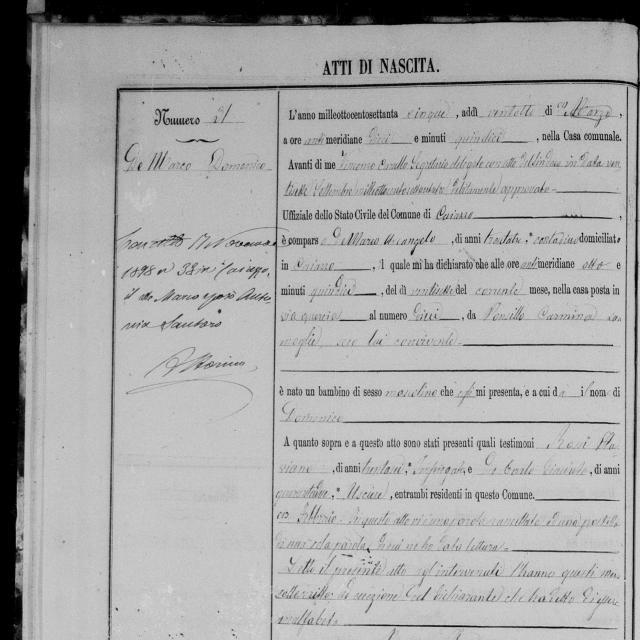 ATTI DI NASCITA.
Numero 31
De Marco Domenico
1898 n 33 in Caiazzo,
il De Marco sposò Anto-
nia Santoro
L'anno milleottocentosettanta cinque, addì ventotto di Marzo,
a ore anti meridiane dieci e minuti quindici, nella Casa comunale.
Avanti di me Segretario delegato con atto del Sindaco in data ven-
tisette Settembre debitamente approvato
Uffiziale dello Stato Civile del Comune di Caiazzo
è comparso De Marco Arcangelo, di anni trentatre, contadino domiciliato
in Caiazzo, il quale mi ha dichiarato che alle ore antimeridiane otto e
minuti quindici, del dì ventisette del corrente mese, nella casa posta in
via al numero dieci, da Ponsillo Carmina sua
moglie seco lui convivente
è nato un bambino di sesso mascolino che egli mi presenta, e a cui dà il nome di
Domenico
A quanto sopra e a questo atto sono stati presenti quali testimoni Rossi Fla-
viano, di anni Impiegato, e De Carlo, di anni
Usciere, entrambi residenti in questo Comune.
Febbraio. In questo atto vi è una parola cancellata ed una postilla
di una sola parola. Indi ne ho data lettura
Letto il presente atto agl'intervenuti l'hanno questi meco
sottoscritto ad eccezione del dichiarante che ha detto di essere
analfabeta